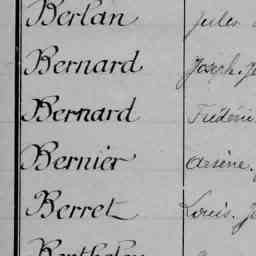 Berlan Jules
Bernard Joseph. J
Bernard Frédéric
Bernier Arsène.
Berret Louis. J